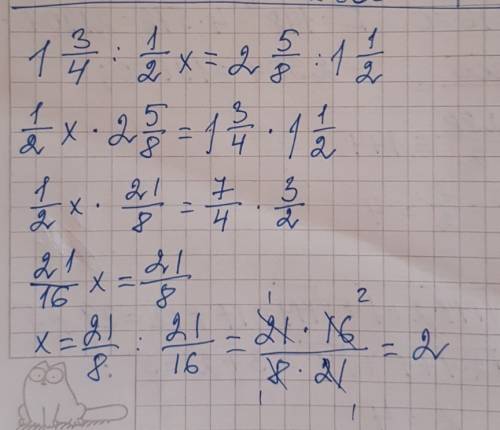 1 3/4 : 1/2 x = 2 5/8 : 1 1/2
1/2 x · 2 5/8 = 1 3/4 · 1 1/2
1/2 x · 21/8 = 7/4 · 3/2
21/16 x = 21/8
x = 21/8 : 21/16 = 21 · 16 / 8 · 21 = 2